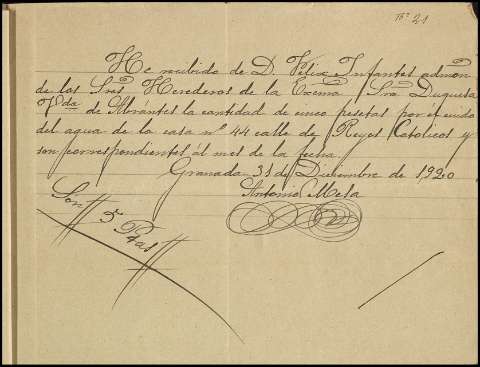 Nº 21
He recibido de D. Félix Infantes admon
de los Sres Herederos de la Excma Sra Duquesa
Vda de Abrántes la cantidad de cinco pesetas por el cuido
del agua de la casa nº 44 calle de Reyes Católicos y
son correspondientes al mes de la fecha.
Granada 31 de Diciembre de 1920
Antonio Mesa
Son 5 Ptas